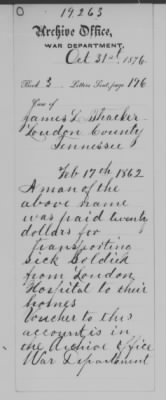 0
19263
Archive Office,
WAR DEPARTMENT,
Oct 31st, 1876
Book 3 Letters Sent, page 196
Case of
James L. Thacker
Loudon County
Tennessee
Feb 17th 1862
A man of the
above name
was paid twenty
dollars for
transporting
Sick Soldier
from Loudon
Hospital to their
homes
Voucher to this
account is in
the Archive Office
War Department